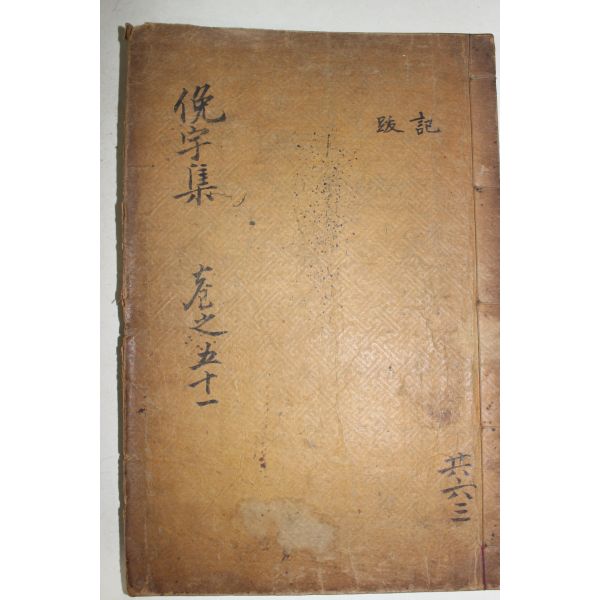 俛宇集 卷之五十一
記 跋
共六三